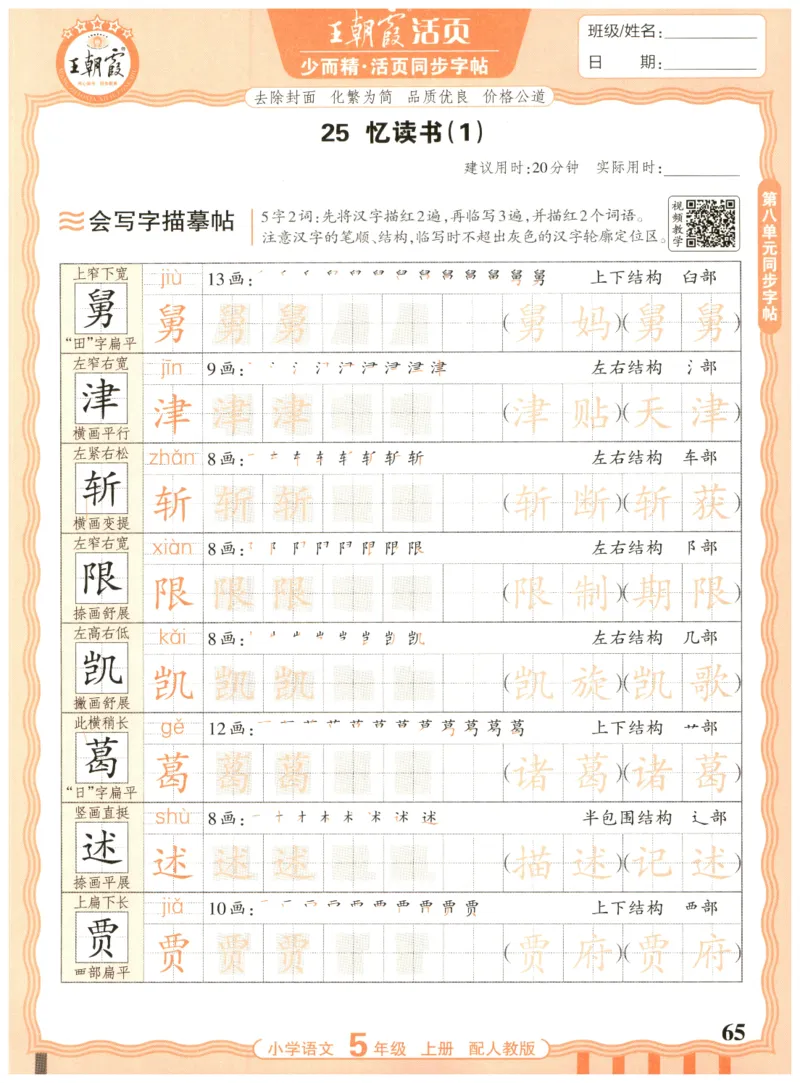 王朝霞
王朝霞活页
少而精·活页同步字帖
班级/姓名:
日 期:
去除封面 化繁为简 品质优良 价格公道
25 忆读书(1)
建议用时:20分钟 实际用时:
会写字描摹帖
5字2词:先将汉字描红2遍,再临写3遍,并描红2个词语。
注意汉字的笔顺、结构,临写时不超出灰色的汉字轮廓定位区。
视频教学
第八单元同步字帖
上窄下宽 jiù 13画: 上下结构 臼部
舅 舅 舅 舅 (舅妈)(舅舅)
“田”字扁平
左窄右宽 jīn 9画: 左右结构 氵部
津 津 津 津 (津贴)(天津)
横画平行
左紧右松 zhǎn 8画: 左右结构 车部
斩 斩 斩 斩 (斩断)(斩获)
横画变提
左窄右宽 xiàn 8画: 左右结构 阝部
限 限 限 限 (限制)(期限)
捺画舒展
左高右低 kǎi 8画: 左右结构 几部
凯 凯 凯 凯 (凯旋)(凯歌)
撇画舒展
此横稍长 gě 12画: 上下结构 艹部
葛 葛 葛 葛 (诸葛)(诸葛)
“日”字扁平
竖画直挺 shù 8画: 半包围结构 辶部
述 述 述 述 (描述)(记述)
捺画平展
上扁下长 jiǎ 10画: 上下结构 覀部
贾 贾 贾 贾 (贾府)(贾府)
覀部扁平
65
小学语文 5年级 上册 配人教版